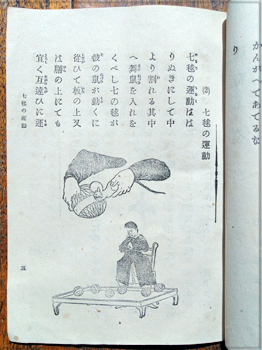 かんがへてあてるな
り
七毬の運動
七毬の運動はは
りぬきにして中
より割れる其中
へ鼠を入れを
くべし七の毬が
彼の鼠が動くに
從ひて板の上又
は膳の上にても
宜く互違ひに運
七毬の運動